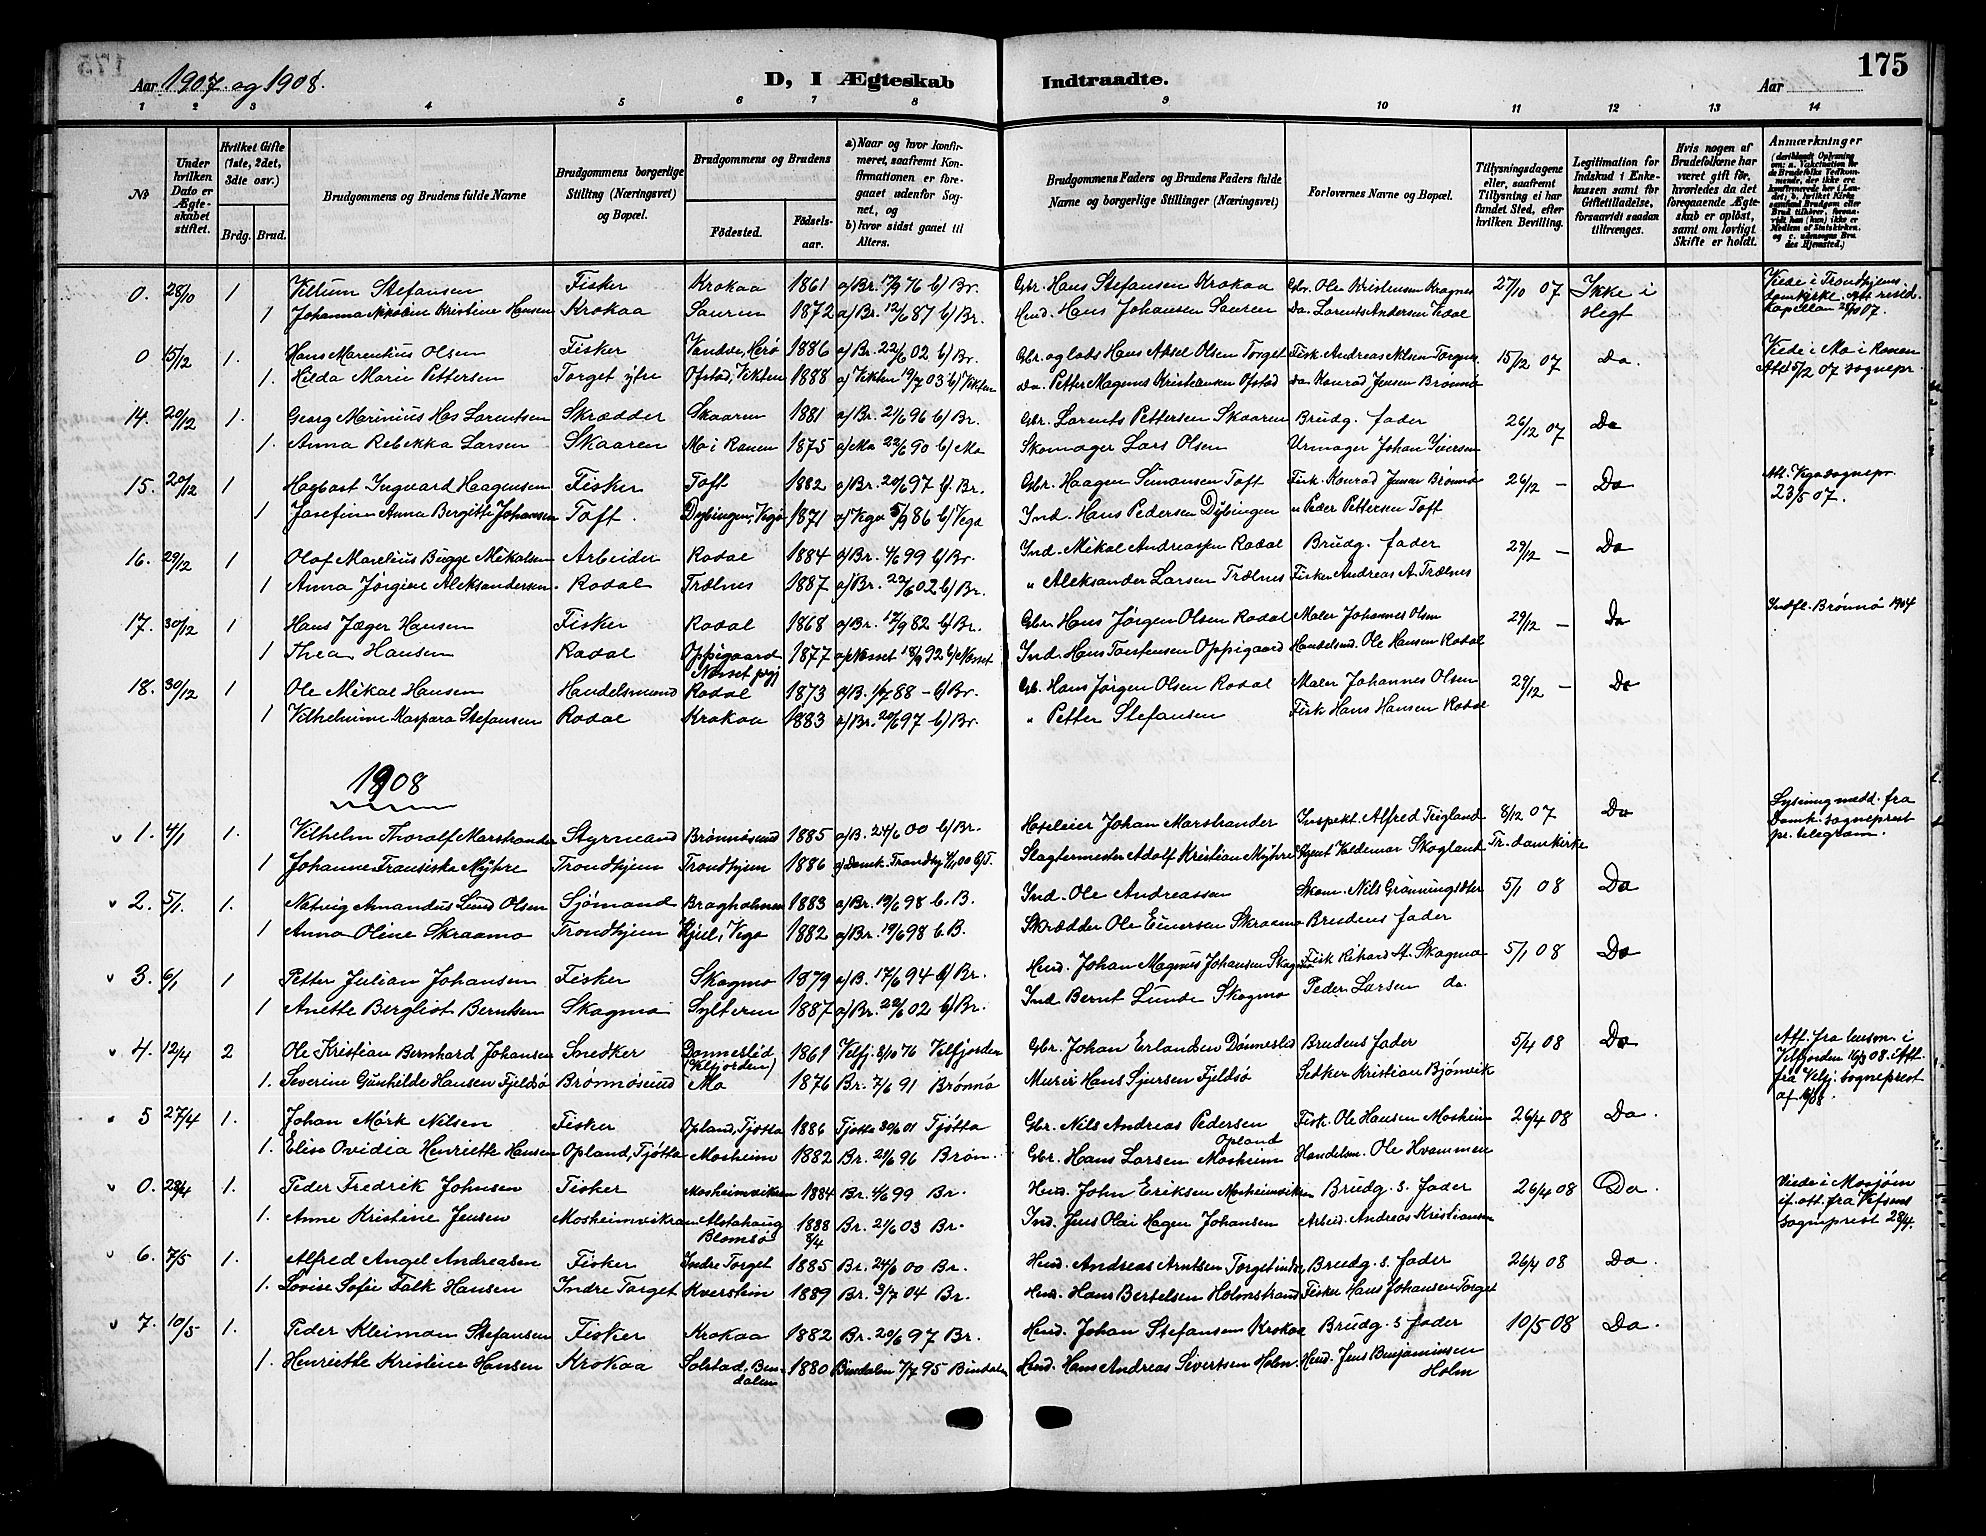 175
Aar 1907 og 1908.
D, I Ægteskab Indtraadte.
Aar
1 2 3 4 5 6 7 8 9 10 11 12 13 14
No
Under hvilken Dato er Ægteskabet stiftet.
Hvilket Gifte (1ste, 2det, 3die osv.)
Brdg. Brud.
Brudgommens og Brudens fulde Navne
Brudgommens borgerlige Stilling (Næringsvei) og Bopæl.
Brudgommens og Brudens
Fødested. Fødselsaar.
a) Naar og hvor konfirmeret, saafremt Konfirmationen er foregaaet udenfor Sognet, og
b) hvor sidst gaaet til Alters.
Brudgommens Faders og Brudens Faders fulde Navne og borgerlige Stillinger (Næringsvei)
Forlovernes Navne og Bopæl.
Tillysningsdagene eller, saafremt Tillysning ei har fundet Sted, efter hvilken Bevilling.
Legitimation for Indskud i Enkekassen samt for Giftetilladelse, forsaavidt saadan tiltrænges.
Hvis nogen af Brudefolkene har været gift før, hvorledes da det foregaaende Ægteskab er opløst, samt om lovligt Skifte er holdt.
Anmærkninger
0. 28/10 1 Viltum Stefansen Fisker Krokaa 1861 a) Br. 17/9 76 b) Br. Gbr. Hans Stefansen Krokaa Gbr. Ole Kristensen Kragnes 27/10 07 Ikke i Viede i Trondhjems
1 Johanna Nikoline Kristine Hansen Krokaa Sauren 1872 a) Br. 12/6 87 b) Br. Hmd. Hans Johansen Sauren Do. Lorents Andersen Tilrem Slegt domkirke. Att. resid. Kapellan 28/10 07.
0 5/12 1. Hans Marentius Olsen Fisker Vandve, Herø 1886 a) Br. 22/6 02 b) Br. Gbr. og lods Hans Absel Olsen Torget Fisk. Andreas Nilsen Torget 15/12 07 Do. Viede i Mo i Ranen
1. Hilda Marie Pettersen Torget ytre Ofstad, Vikten 1888 a) Vikten 19/7 03 b) Vikten Do. Petter Magnus Kristiansen Ofstad Do. Konrad Jensen Brønnø Att. 5/12 07 sognepr.
14. 20/12 1. Georg Marinius Hos Lorentsen Skrædder Skaaren 1881 a) Br. 21/6 96 b) Br. Gbr. Lorents Pettersen Skaaren Brudg. fader 26/12 07 Do
1. Anna Rebekka Larsen Skaaren Mo i Ranen 1875 a) Mo 22/6 90 b) Mo Skomager Lars Olsen Urmager Johan Iversen
15. 20/12 1 Hagbart Ingvard Haagensen Fisker Toft 1882 a) Br. 20/6 97 b) Br. Gbr. Haagen Simonsen Toft Fisk. Konrad Jensen Brønnø 26/12 — Do Att. Vega sognepr.
1 Josefine Anna Bergitte Johansen Toft. Dybingen, Vega 1871 a) Vega 5/9 86 b) Vega Ind. Hans Pedersen Dybingen " Peder Pettersen Toft 23/5 07.
16. 29/12 1 Olaf Marelius Bugge Mikalsen Arbeider Rodal 1884 a) Br. 4/6 99 b) Br. Ind. Mikal Andreassen Rodal Brudg. fader 29/12 — Do
1 Anna Jørgine Aleksandersen Rodal Trælnes 1887 a) Br. 22/6 02 b) Br. " Aleksander Larsen Trælnes Fisker Andreas A. Trælnes
17. 30/12 1 Hans Jæger Hansen Fisker Rodal 1868 a) Br. 17/9 82 b) Br. Gbr. Hans Jørgen Olsen Rodal Maler Johannes Olsen 29/12 — Do Indfl. Brønnø 1904
1 Thea Hansen Rodal Oppigaard 1877 a) Nesset 18/9 92 b) Nesset Ind. Hans Torstensen Oppigaard Handelsmd. Ole Hansen Rodal
Nesset pgj
18. 30/12 1 Ole Mikal Hansen Handelsmand Rodal 1873 a) B. 1/7 88 — b) Br. Gb. Hans Jørgen Olsen Rodal Maler Johannes Olsen 29/12 — Do
1 Vilhelmine Kaspara Stefansen Rodal Krokaa 1883 a) Br. 20/6 97 b) Br. " Petter Stefansen Fisk Hans Hansen Rodal
1908
v 1. 4/1 1. Vilhelm Thoralf Marstrander Styrmand Brønnøsund 1885 a) B. 24/6 00 b) Br. Hoteleier Johan Marstrander Inspekt. Alfred Trigland 8/12 07 Do Lysning medd. fra
1 Johanne Fransiska Myhre Trondhjem Trondhjem 1886 a) Domk. Trondhj 4/1 00 b) T. Slagtermester Adolf Kristian Myhre Agent Valdemar Skogland Tr. domkirke Domk. sogneprest pr. telegram.
v 2. 5/1. 1. Natvig Amandus Lund Olsen Sjømand Bragholmen 1883 a) Br. 19/6 98 b. B. Ind. Ole Andreassen Skom. Nils Grønningsæter 5/1 08 Do
1 Anna Oline Skraamo Trondhjem Kjul, Vega 1882 a) Br. 19/6 98 b. B. Skrædder Ole Einersen Skraamo Brudens fader
v 3. 6/1 1 Petter Julian Johansen Fisker Skagmo 1879 a) B. 17/6 94 b) Br. Hmd. Johan Magnus Johansen Skagmo Fisk Rikard A. Skagmo 5/1 08 Do
1 Anette Bergliot Berntsen Skagmo Sylteren 1887 a) Br. 22/6 02 b) Br. Ind Bernt Lunde Skagmo Peder Larsen do.
v 4. 12/4 2 Ole Kristian Bernhard Johansen Snedker Dønneslid 1861 Velfj. 8/10 76 Velfjorden Gbr. Johan Erlandsen Dønneslid Brudens fader 5/4 08 Do Att. fra lensm. i
(Velfjorden)
1. Severine Gunhilde Hansen Fjeldsø Brønnøsund Mo 1876 Br. 7/6 91 Brønnø Murer Hans Sjursen Fjeldsø Sedker Kristian Bjørnvik Velfjorden 16/3 08. i Att. fra Velfj. sogneprest
5 27/4 1. Johan Mørk Nilsen Fisker Opland, Tjøtta 1886 Tjøtta 30/6 01 Tjøtta Gbr. Nils Andreas Pedersen Opland Fisk. Ole Hansen Mosheim 26/4 08 Do.
1. Elise Ovidia Henriette Hansen Opland, Tjøtta Mosheim 1882 Br. 21/6 96 Brøn. Gbr. Hans Larsen Mosheim Handelsm. Ole Hvammen
v 0. 28/4 1. Peder Fredrik Johnsen Fisker Mosheimviken 1884 Br. 4/6 99 Br. Hmd. John Eriksen Mosheimviken Brudg. s. fader 26/4 08 Do. Viede i Mosjøen
1. Anne Kristine Jensen Mosheimviken Alstahaug Blomsø 1888 8/4 Br. 21/6 03 Br. Ind. Jens Olai Hagen Johansen Arbeid. Andreas Kristiansen if. att. fra Vefsens sogneprest 28/4.
v 6. 7/5 1. Alfred Angel Andreasen Fisker Indre Torget 1885 Br. 24/6 00 Br. Hmd. Andreas Arntsen Torget indre Brudg. s. fader 26/4 08 Do.
1. Lovise Sofie Falk Hansen Indre Torget Kverstein 1889 Br. 3/7 04 Br. Hmd. Hans Bertelsen Holmstrand Fisker Hans Johansen Torget
v 7. 10/5 1. Peder Kleiman Stefansen Fisker Krokaa 1882 Br. 20/6 97 Br. Hmd. Johan Stefansen Krokaa Brudg. s fader 10/5 08 Do.
1. Henriette Kristine Hansen Krokaa Solstad, Bindalen 1880 Bindalen 7/7 95 Bindalen Hmd. Hans Andreas Sivertsen Holm. Hmd. Jens Benjaminsen Holm